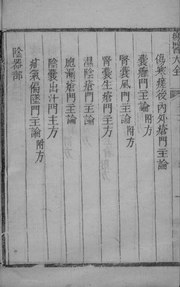 傷寒瘥後內外瘡門主論
囊癰門主論附方
腎囊風門主論附方
腎囊生瘡門主方
濕陰瘡門主論
胞漏瘡門主論
陰囊出汁門主方
疝氣偏墜門主論附方
陰器部